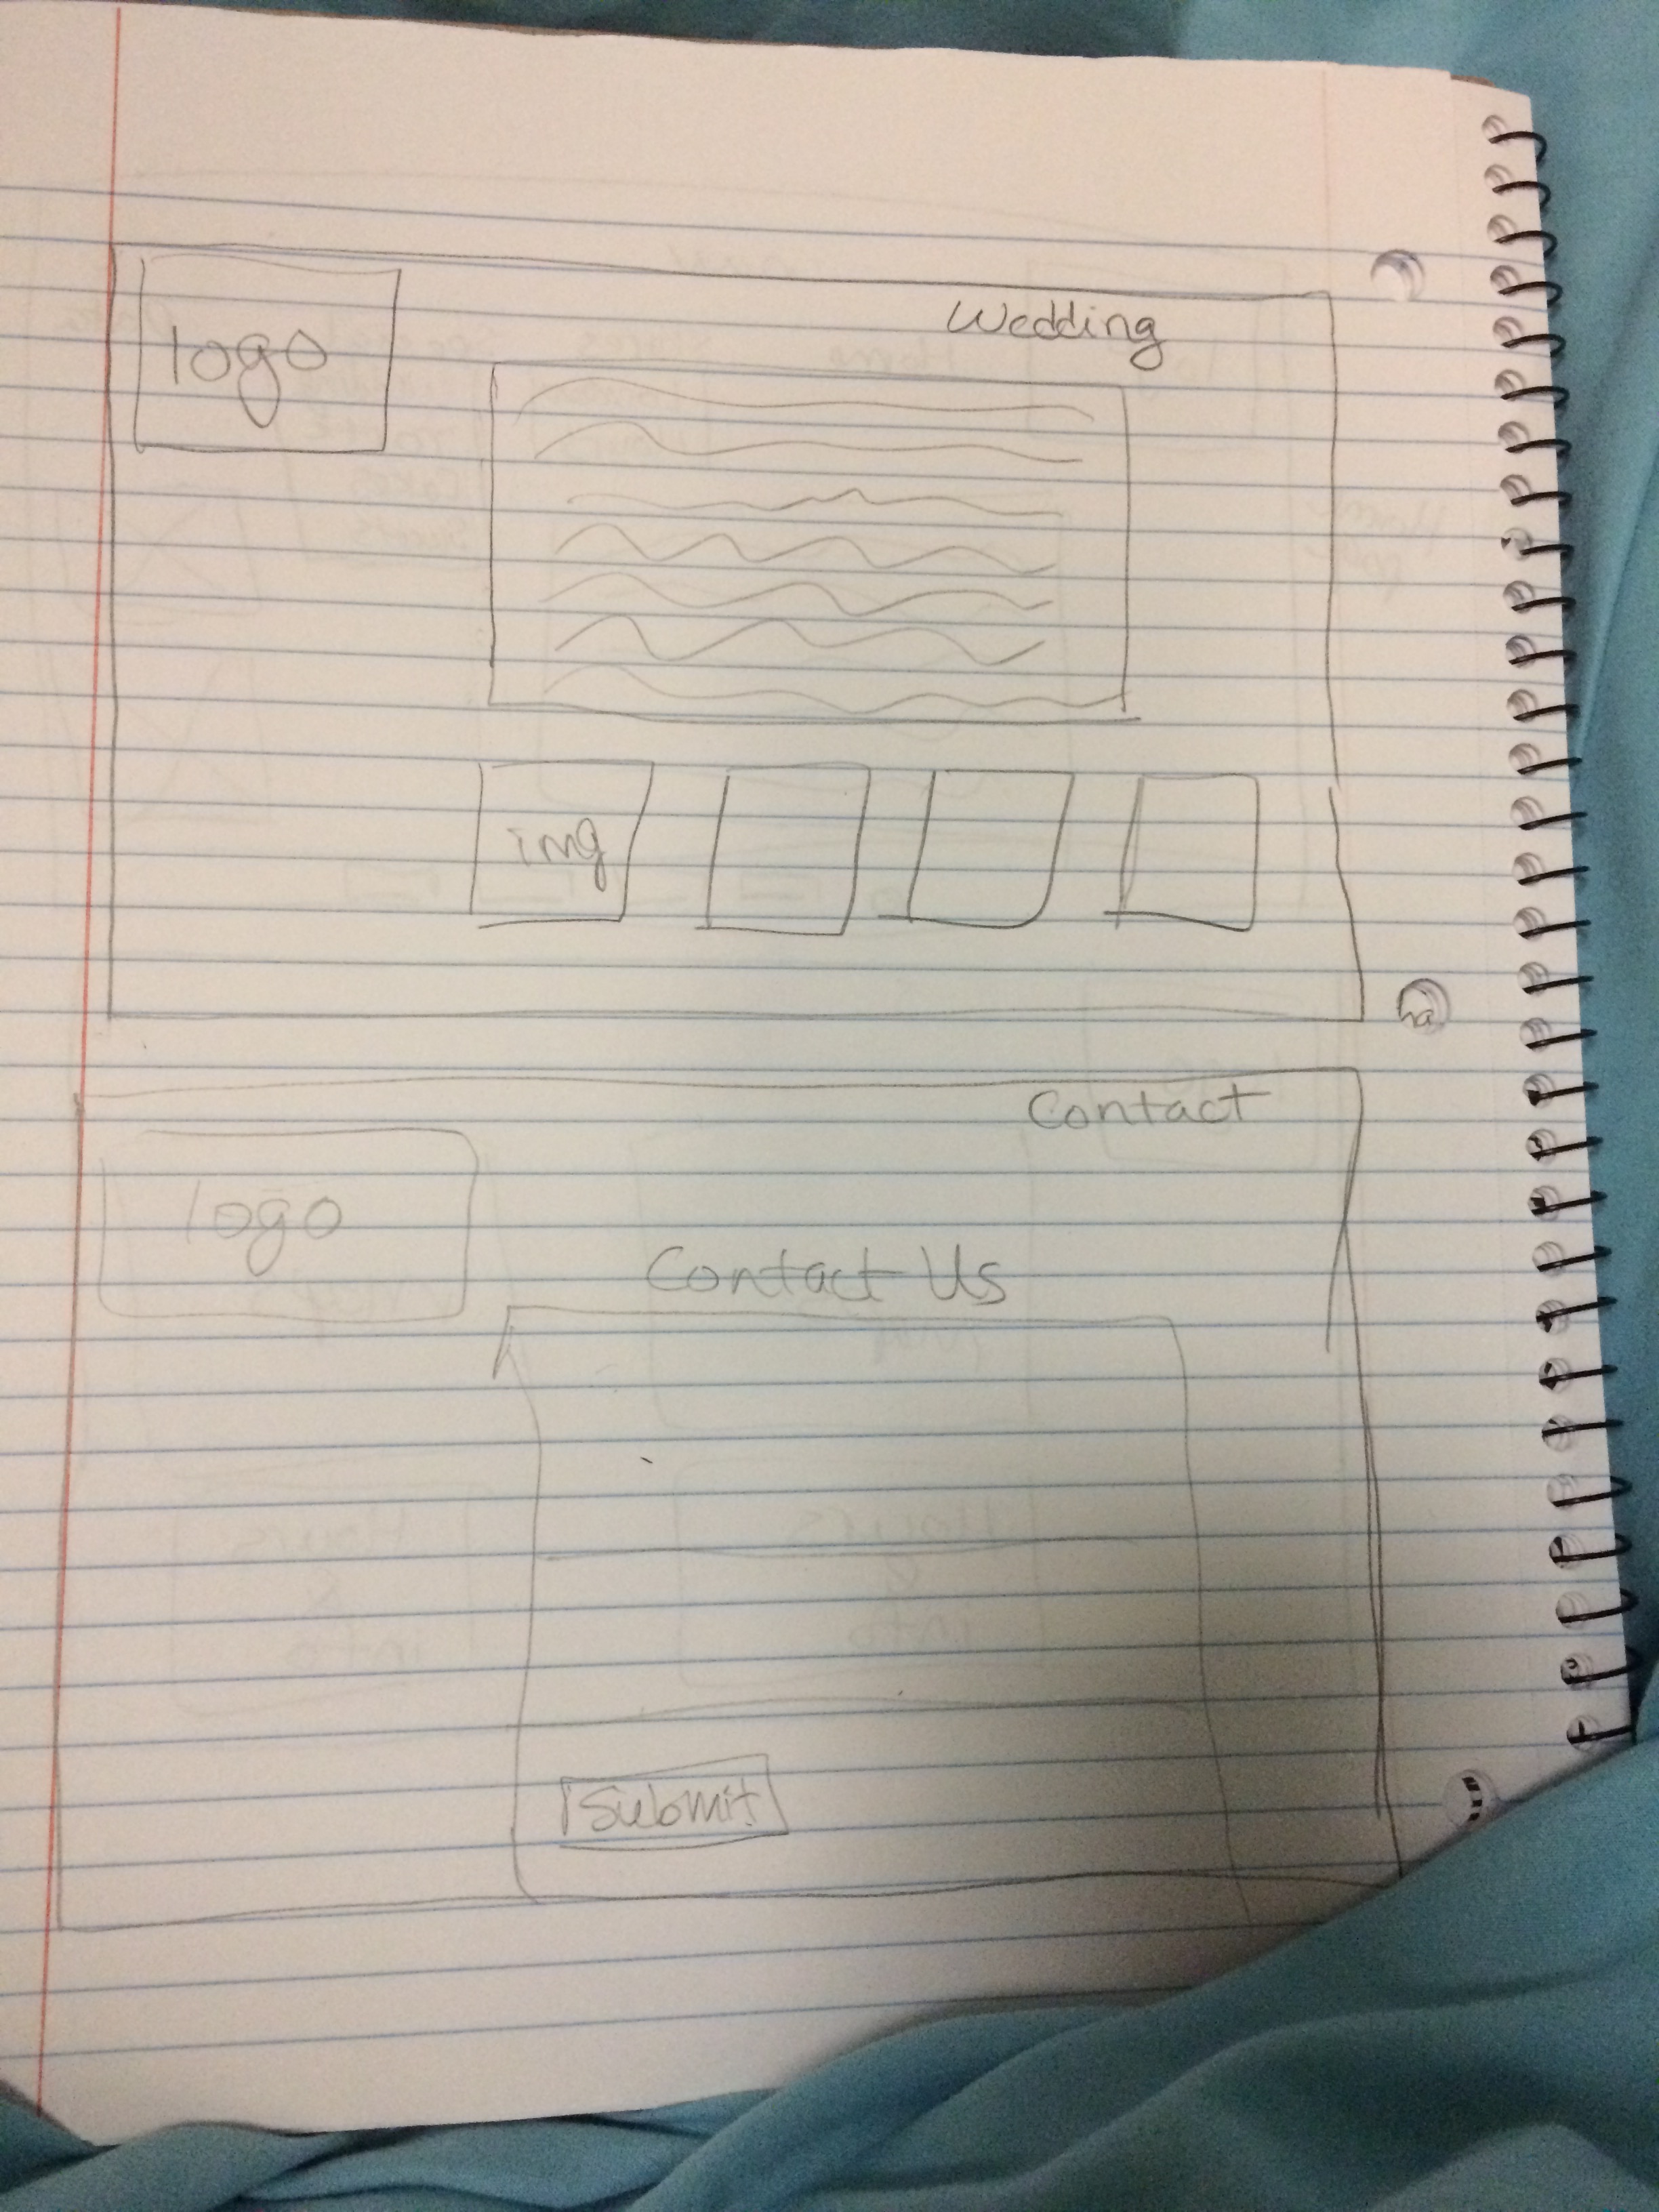 Wedding
logo
img
Contact
logo
Contact Us
Submit